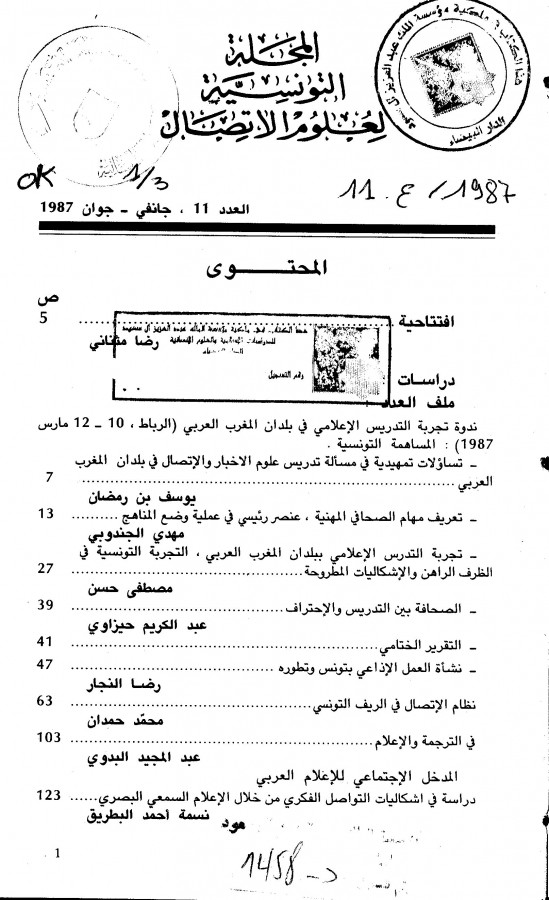 المجلة
التونسية
لعلوم الاتصال
هذا الكتاب ملكية مؤسسة الملك عبد العزيز آل سعود
الدار البيضاء
OK
1/3
11 . ع / 1987
العدد 11 ، جانفي - جوان 1987
المحتوى
ص
افتتاحية ........ 5
رضا مثناني
رقم التسجيل
دراسات
ملف العدد
ندوة تجربة التدريس الإعلامي في بلدان المغرب العربي (الرباط ، 10 - 12 مارس
1987) : المساهمة التونسية .
- تساؤلات تمهيدية في مسألة تدريس علوم الاخبار والإتصال في بلدان المغرب
العربي ........ 7
يوسف بن رمضان
- تعريف مهام الصحافي المهنية ، عنصر رئيسي في عملية وضع المناهج ........ 13
مهدي الجندوبي
- تجربة التدرس الإعلامي ببلدان المغرب العربي ، التجربة التونسية في
الظرف الراهن والإشكاليات المطروحة ........ 27
مصطفى حسن
- الصحافة بين التدريس والإحتراف ........ 39
عبد الكريم حيزاوي
- التقرير الختامي ........ 41
- نشأة العمل الإذاعي بتونس وتطوره ........ 47
رضا النجار
نظام الإتصال في الريف التونسي ........ 63
محمّد حمدان
في الترجمة والإعلام ........ 103
عبد المجيد البدوي
المدخل الإجتماعي للإعلام العربي
دراسة في اشكاليات التواصل الفكري من خلال الإعلام السمعي البصري ...... 123
نسمة أحمد البطريق
1458
1